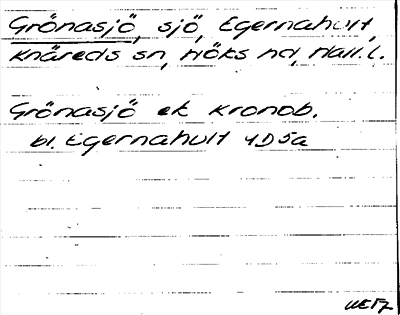 Grönasjö, sjö, Egernahult,
Knäreds sn, Höks hd, Hall. l.
Grönasjö ek Kronob.
bl. Egernahult 4D5a